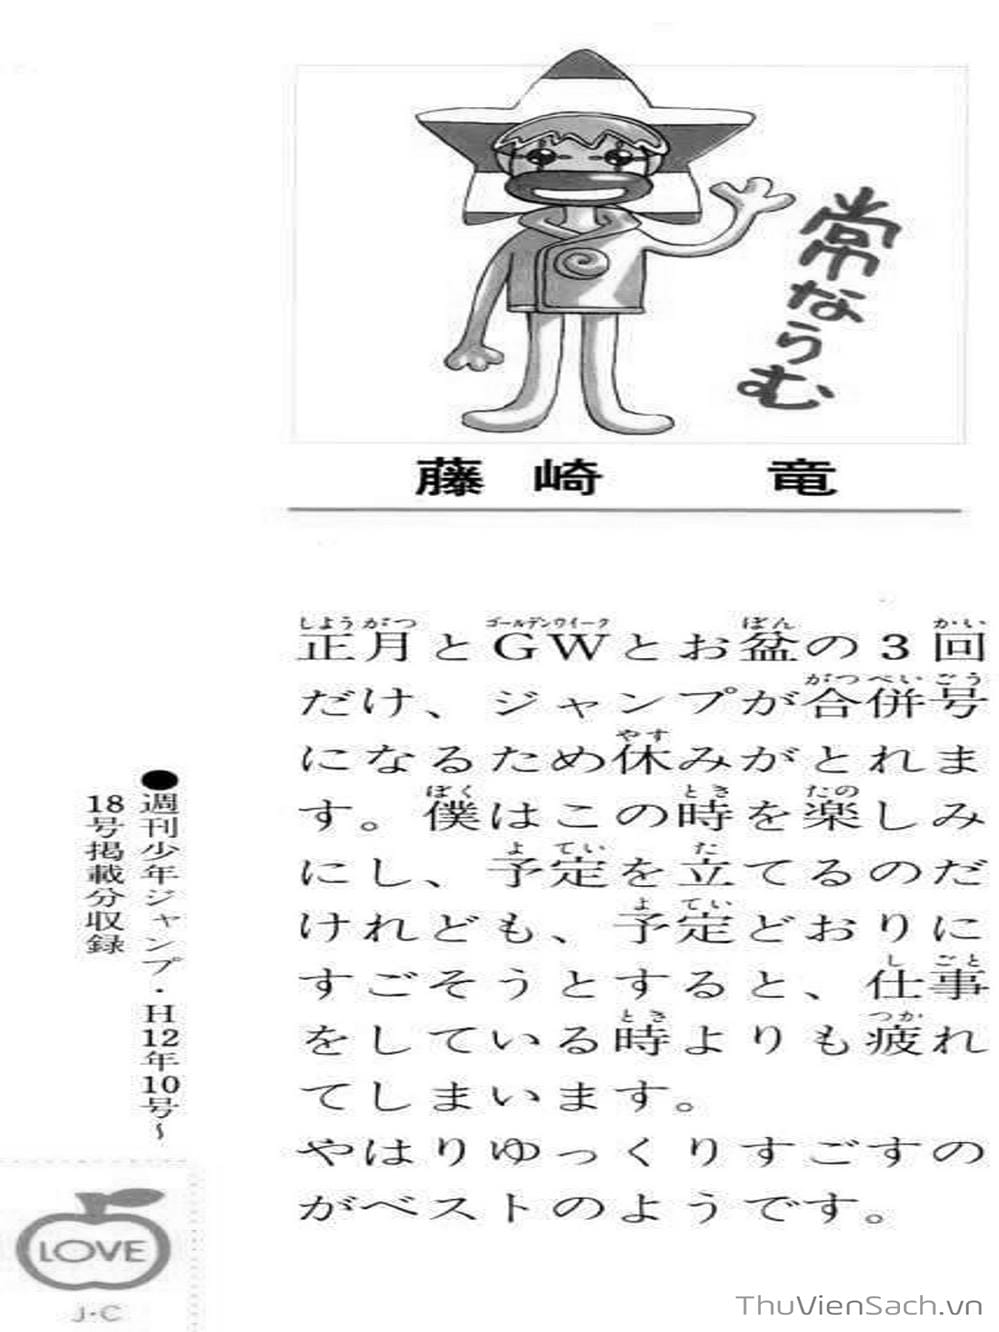 常ならむ
藤崎 竜
正月とGWとお盆の3回
だけ、ジャンプが合併号
になるため休みがとれま
す。僕はこの時を楽しみ
にし、予定を立てるのだ
けれども、予定どおりに
すごそうとすると、仕事
をしている時よりも疲れ
てしまいます。
やはりゆっくりすごすの
がベストのようです。
●週刊少年ジャンプ・H12年10号〜
18号掲載分収録
LOVE
J・C
ThuVienSach.vn